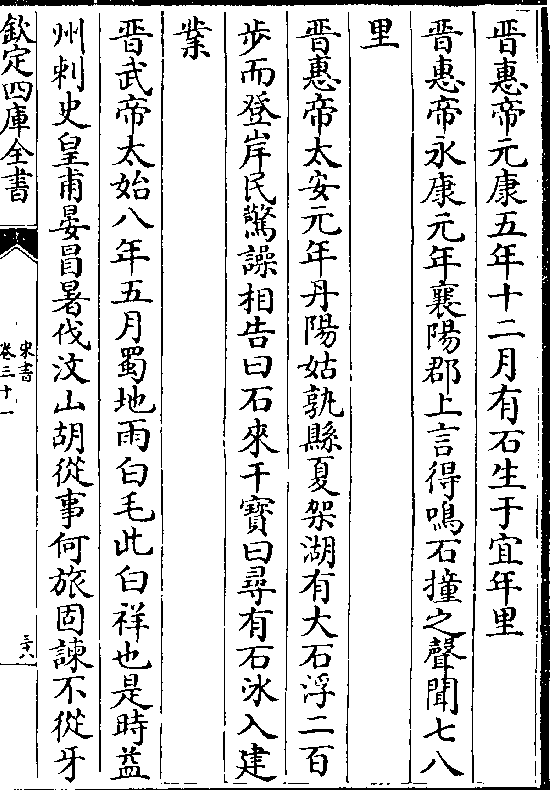 晋惠帝元康五年十二月有石生于宜年里
晋惠帝永康元年襄陽郡上言得鳴石撞之聲聞七八
里
晋惠帝太安元年丹陽姑孰縣夏架湖有大石浮二百
步而登岸民驚譟相告曰石來干寶曰尋有石冰入建
業
晋武帝太始八年五月蜀地雨白毛此白祥也是時益
州刺史皇甫晏冒暑伐汶山胡從事何旅固諫不從牙
欽定四庫全書
宋書
卷三十一
三十八